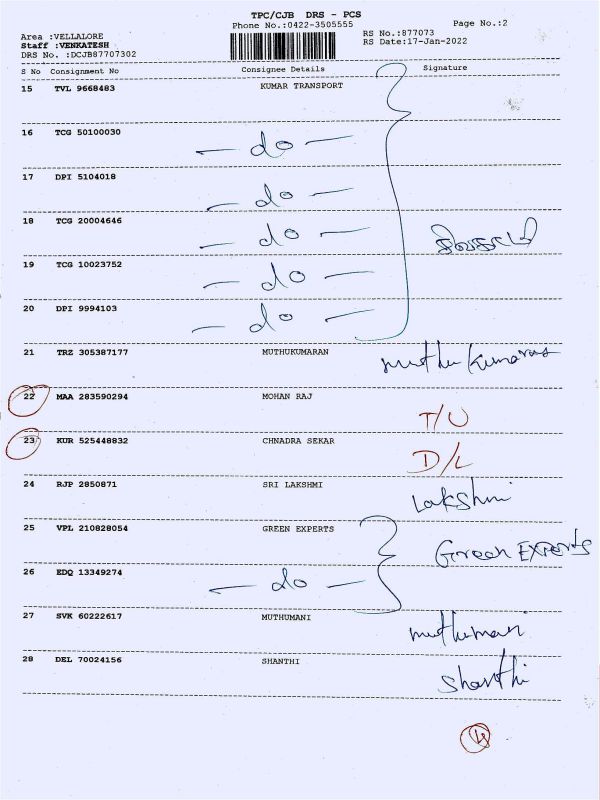 TPC/CJB DRS - PCS
Phone No.:0422-3505555
Page No.:2
Area :VELLALORE
Staff :VENKATESH
DRS No. :DCJB87707302
RS No.:877073
RS Date:17-Jan-2022
S No Consignment No Consignee Details Signature
15 TVL 9668483 KUMAR TRANSPORT
16 TCG 50100030 — do —
17 DPI 5104018 — do —
18 TCG 20004646 — do —
19 TCG 10023752 — do —
20 DPI 9994103 — do —
21 TRZ 305387177 MUTHUKUMARAN muthukumaran
22 MAA 283590294 MOHAN RAJ T/U
23 KUR 525448832 CHNADRA SEKAR D/L
24 RJP 2850871 SRI LAKSHMI Lakshmi
25 VPL 210828054 GREEN EXPERTS Green EXPERTS
26 EDQ 13349274 — do —
27 SVK 60222617 MUTHUMANI muthumani
28 DEL 70024156 SHANTHI Shanthi